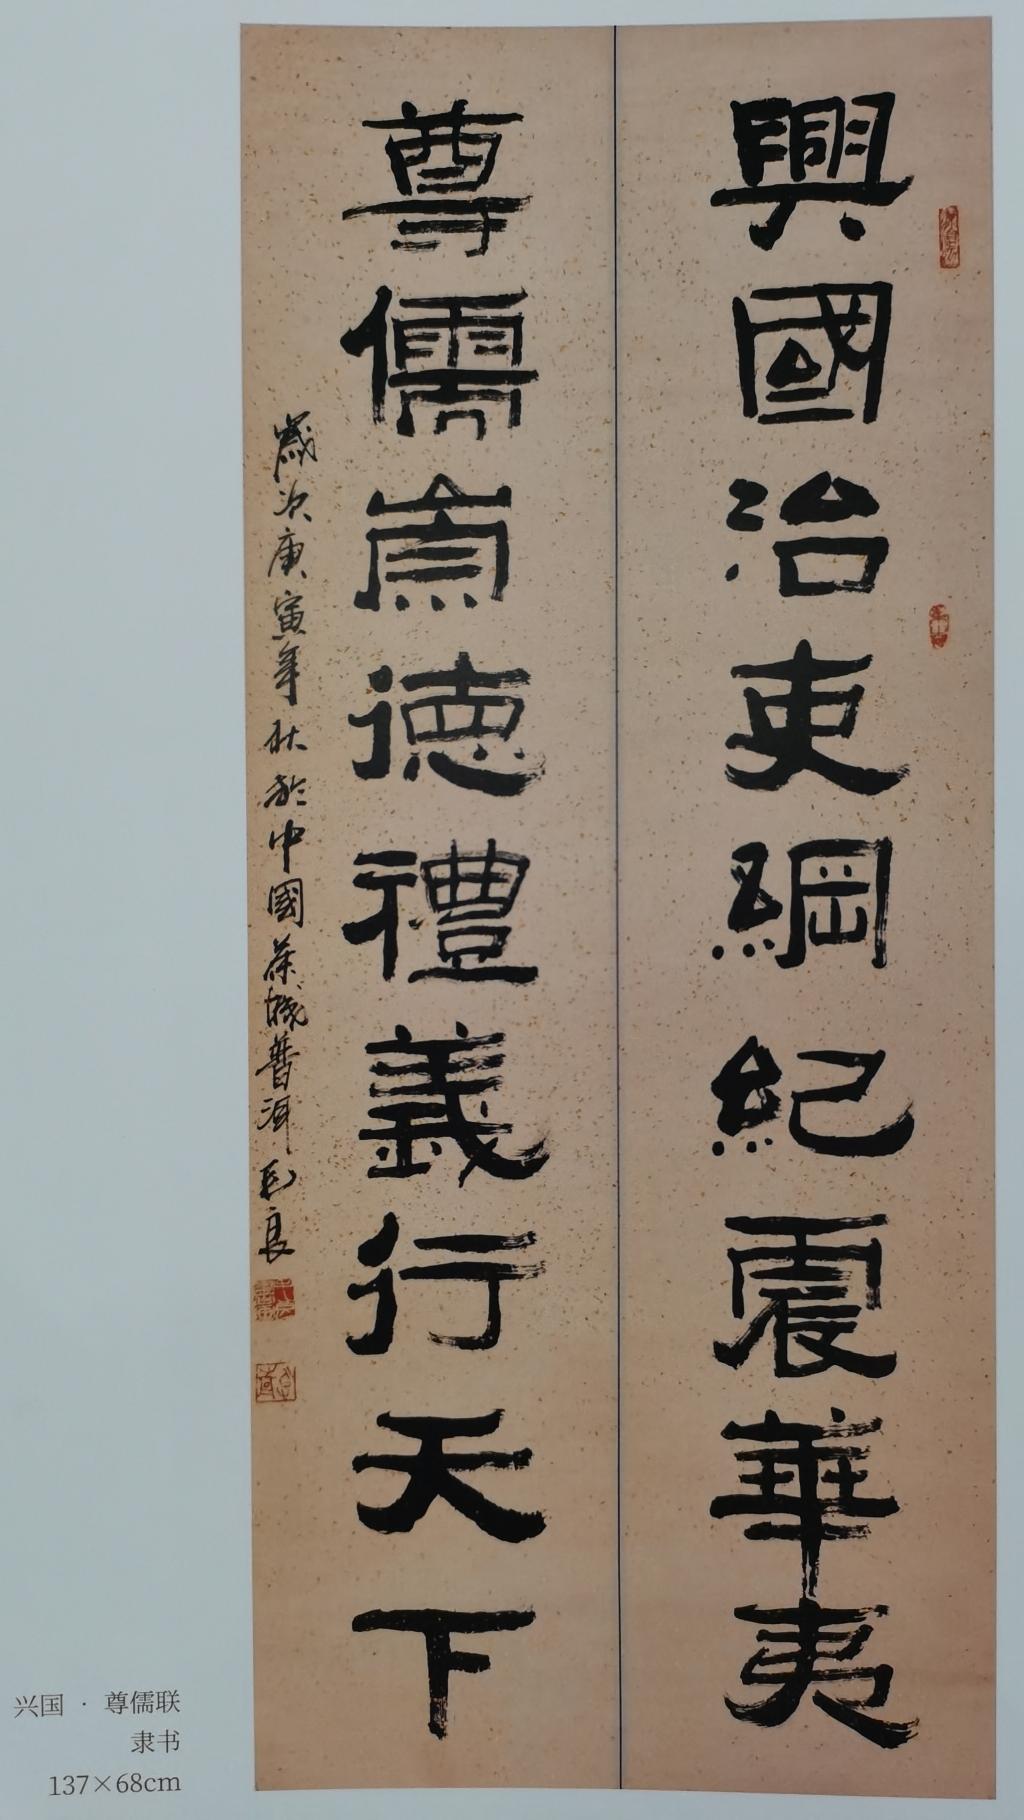 興國治吏綱紀震華夷
尊儒崇德禮義行天下
歲次庚寅年秋於中國茶城普洱
兴国 · 尊儒联
隶书
137×68cm